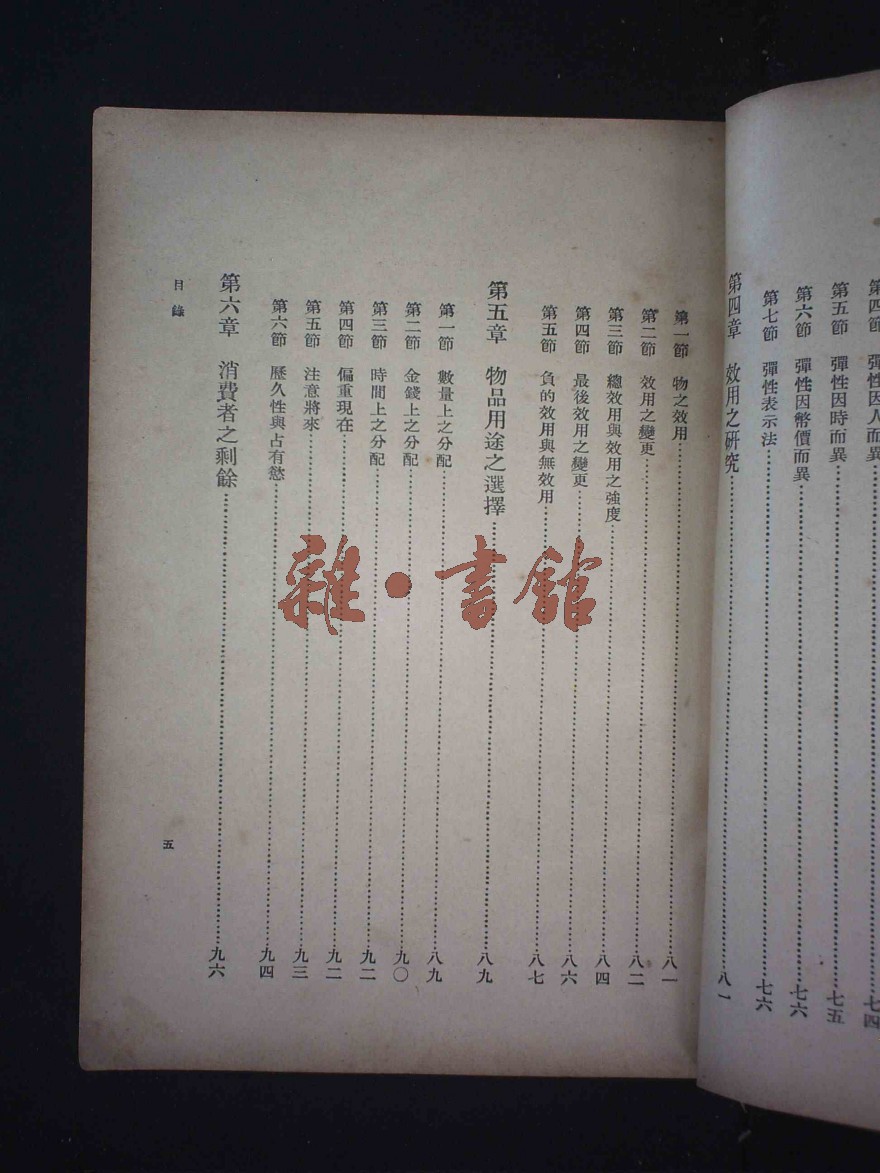 第四節 彈性因人而異……七四
第五節 彈性因時而異……七五
第六節 彈性因幣價而異……七六
第七節 彈性表示法……七六
第四章 效用之研究……八一
第一節 物之效用……八一
第二節 效用之變更……八二
第三節 總效用與效用之強度……八四
第四節 最後效用之變更……八六
第五節 負的效用與無效用……八七
第五章 物品用途之選擇……八九
第一節 數量上之分配……八九
第二節 金錢上之分配……九〇
第三節 時間上之分配……九二
第四節 偏重現在……九二
第五節 注意將來……九三
第六節 歷久性與占有慾……九四
第六章 消費者之剩餘……九六
目錄
五
雜·書館